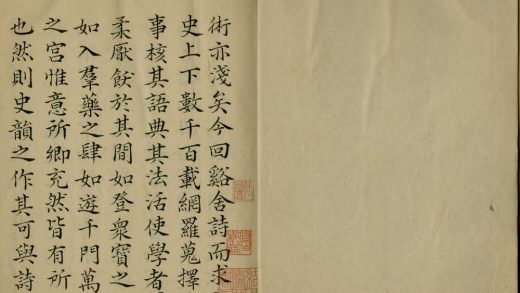 術亦淺矣今回谿舍詩而求
史上下數千百載網羅蒐擇
事核其語典其法活使學者
柔厭飫於其間如登衆寶之
如入羣藥之肆如遊千門萬
之宮惟意所鄉充然皆有所
也然則史韻之作其可與詩